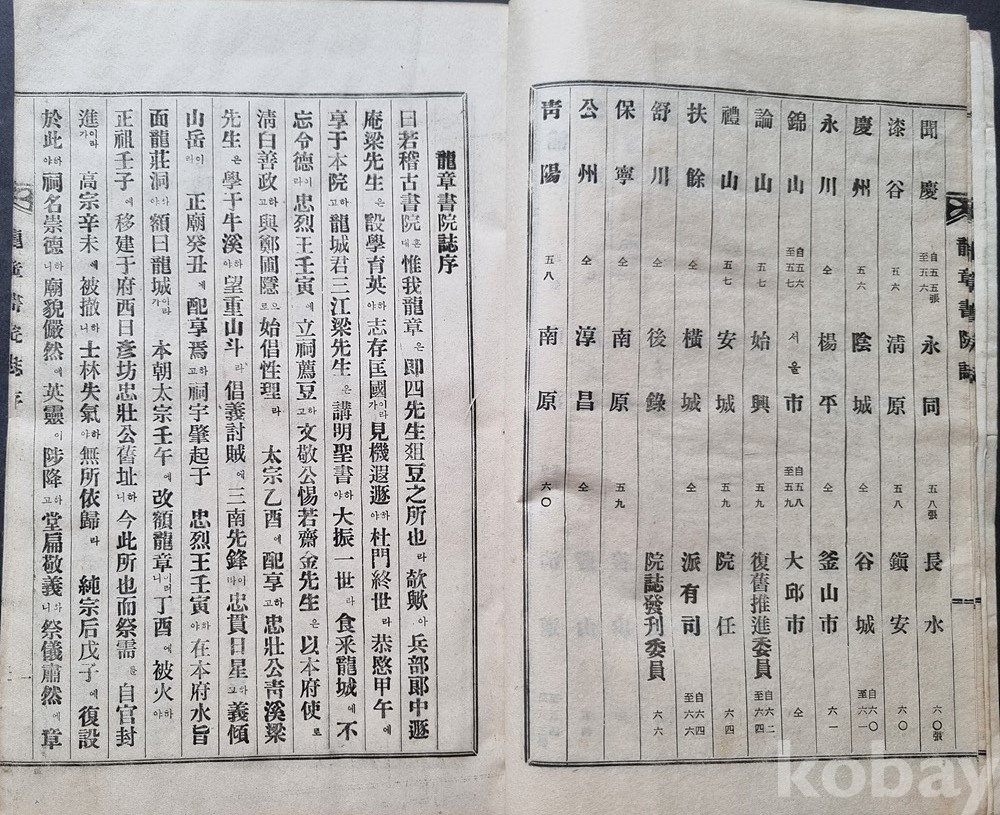 龍章書院誌
聞慶 自五五張至五六 永同 五八張 長水 六〇張
漆谷 五六 清原 五八 鎭安 六〇
慶州 五六 陰城 仝 谷城 自六〇至六一
永川 仝 楊平 仝 釜山市 六一
錦山 自五六至五七 서울市 自五八至五九 大邱市 仝
論山 五七 始興 五九 復舊推進委員 自六二至六四
禮山 五七 安城 五九 院任 六四
扶餘 仝 橫城 仝 派有司 自六四至六六
舒川 仝 後錄 院誌發刊委員 六六
保寧 仝 南原 五九
公州 仝 淳昌 仝
靑陽 五八 南原 六〇
龍章書院誌序
曰若稽古書院혼대惟我龍章은即四先生俎豆之所也라欹歟아兵部郞中遯
庵梁先生은設學育英하야志存匡國이라가見機遐遯하야杜門終世라恭愍甲午에
享于本院하고龍城君三江梁先生은講明聖書하야大振一世라食采龍城에不
忘令德이라忠烈王壬寅에立祠薦豆하고文敬公惕若齋金先生은以本府使로
淸白善政하고與鄭圃隱으로始倡性理라 太宗乙酉에配享하고忠壯公靑溪梁
先生은學于牛溪하야望重山斗라倡義討賊에三南先鋒이따忠貫日星하고義傾
山岳이러 正廟癸丑에配享焉하고祠宇肇起于 忠烈王壬寅하야在本府水旨
面龍莊洞하야額曰龍城이라가 本朝太宗壬午에改額龍章이러니丁酉에被火하야
正祖壬子에移建于府西日彥坊忠壯公舊址하니今此所也而祭需를自官封
進이라가 高宗辛未에被撤하니士林失氣하야無所依歸라 純宗后戊子에復設
於此하야祠名崇德하니廟貌儼然에英靈이陟降하고堂扁敬義와니祭儀肅然에章
龍章書院誌序
一
kobay